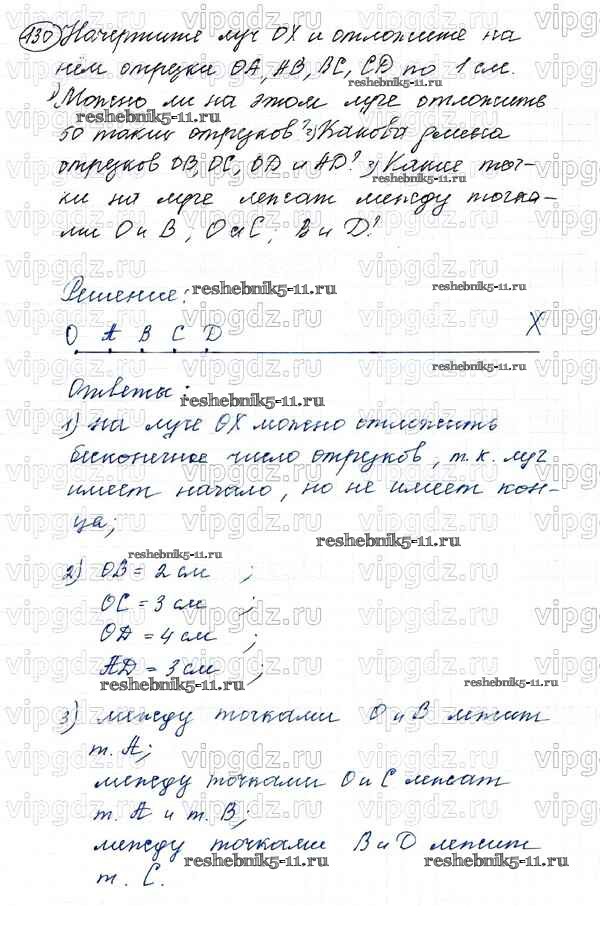 130) Начертите луч ОХ и отложите на
нём отрезки ОА, АВ, ВС, CD по 1 см.
1) Можно ли на этом луче отложить
50 таких отрезков? 2) Какова длина
отрезков ОВ, ОС, OD и AD? 3) Какие точ-
ки на луче лежат между точка-
ми О и В; О и С; В и D?
Решение:
О А В С D Х
Ответы:
1) на луче ОХ можно отложить
бесконечное число отрезков, т.к. луч
имеет начало, но не имеет кон-
ца;
2) ОВ = 2 см ;
ОС = 3 см ;
OD = 4 см ;
AD = 3 см ;
3) между точками О и В лежит
т. А;
между точками О и С лежат
т. А и т. В;
между точками В и D лежит
т. С.
reshebnik5-11.ru
vipgdz.ru